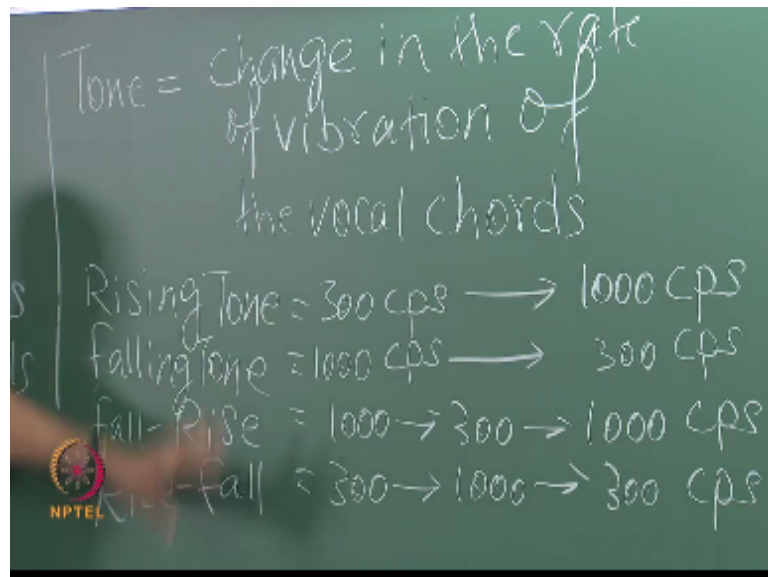 Tone = change in the rate
of vibration of
the vocal chords
s Rising Tone = 300 cps → 1000 cps
ls falling Tone = 1000 cps → 300 cps
fall-Rise = 1000 → 300 → 1000 cps
Rise-fall = 300 → 1000 → 300 cps
NPTEL